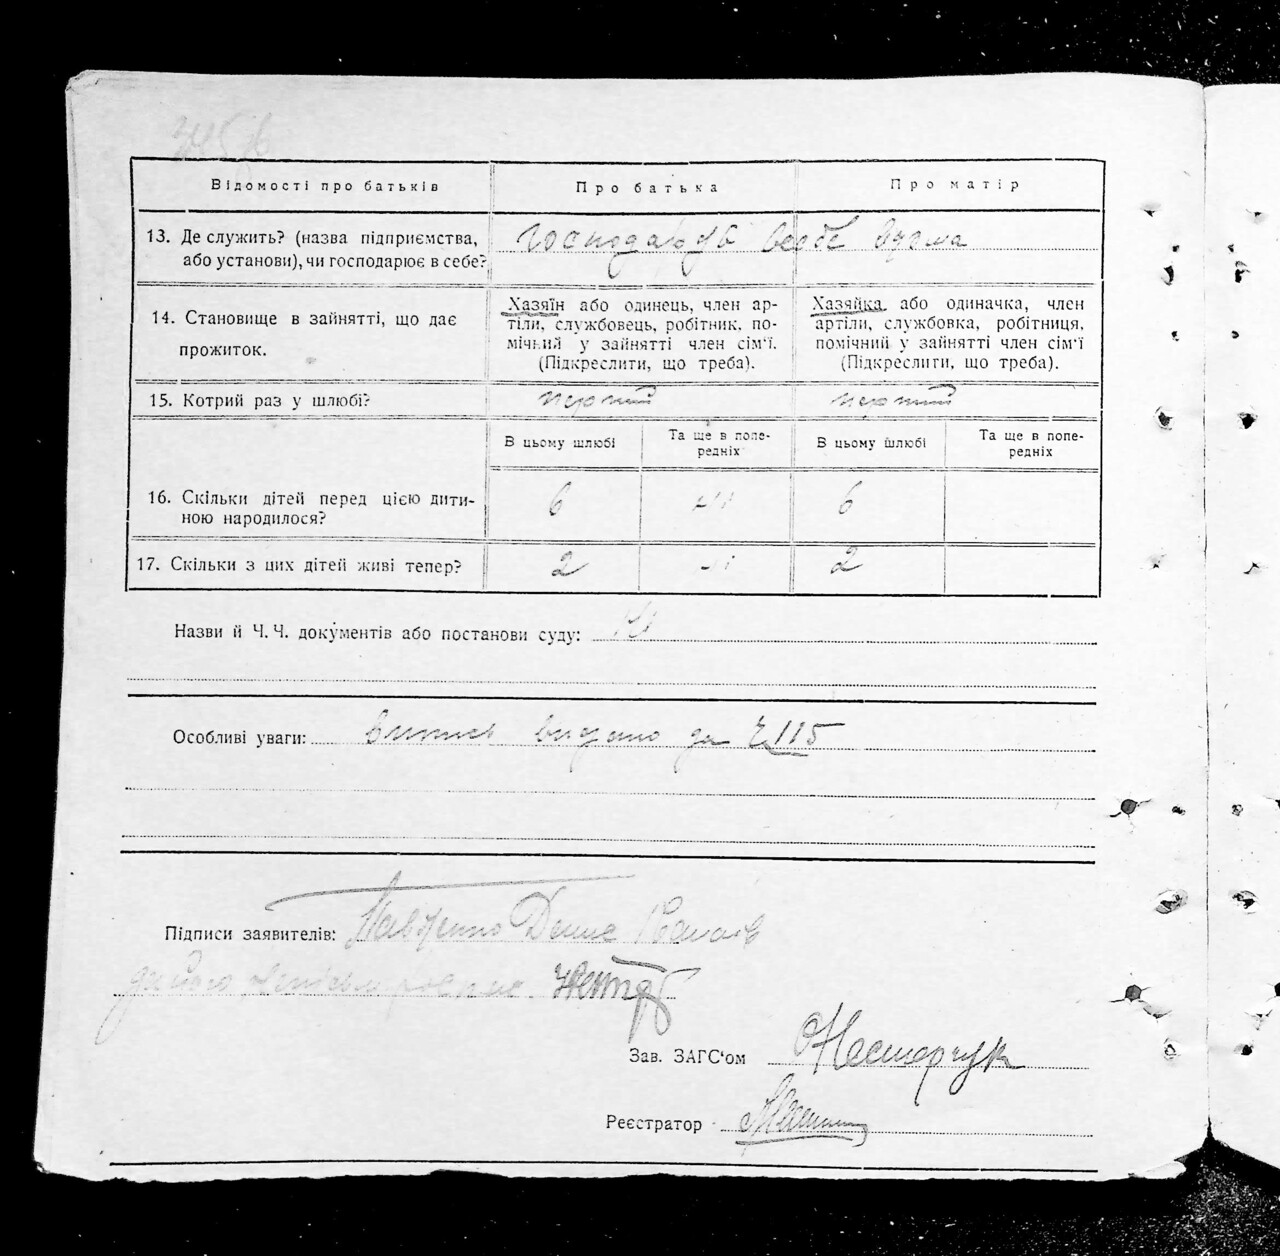 Відомості про батьків
Про батька
Про матір
13. Де служить? (назва підприємства, або установи), чи господарює в себе?
Господарює в себе вдома
14. Становище в зайнятті, що дає прожиток.
Хазяїн або одинець, член ар-
тіли, службовець, робітник, по-
мічний у зайнятті член сім'ї.
(Підкреслити, що треба).
Хазяйка або одиначка, член
артіли, службовка, робітниця,
помічний у зайнятті член сім'ї
(Підкреслити, що треба).
15. Котрий раз у шлюбі?
перший
перший
В цьому шлюбі
Та ще в попе-
редніх
В цьому шлюбі
Та ще в попе-
редніх
16. Скільки дітей перед цією дити-
ною народилося?
6
6
17. Скільки з цих дітей живі тепер?
2
2
Назви й Ч. Ч. документів або постанови суду:
Особливі уваги: випись видано за Ч 115
Підписи заявителів:
Зав. ЗАГС'ом Нестерчук
Реєстратор